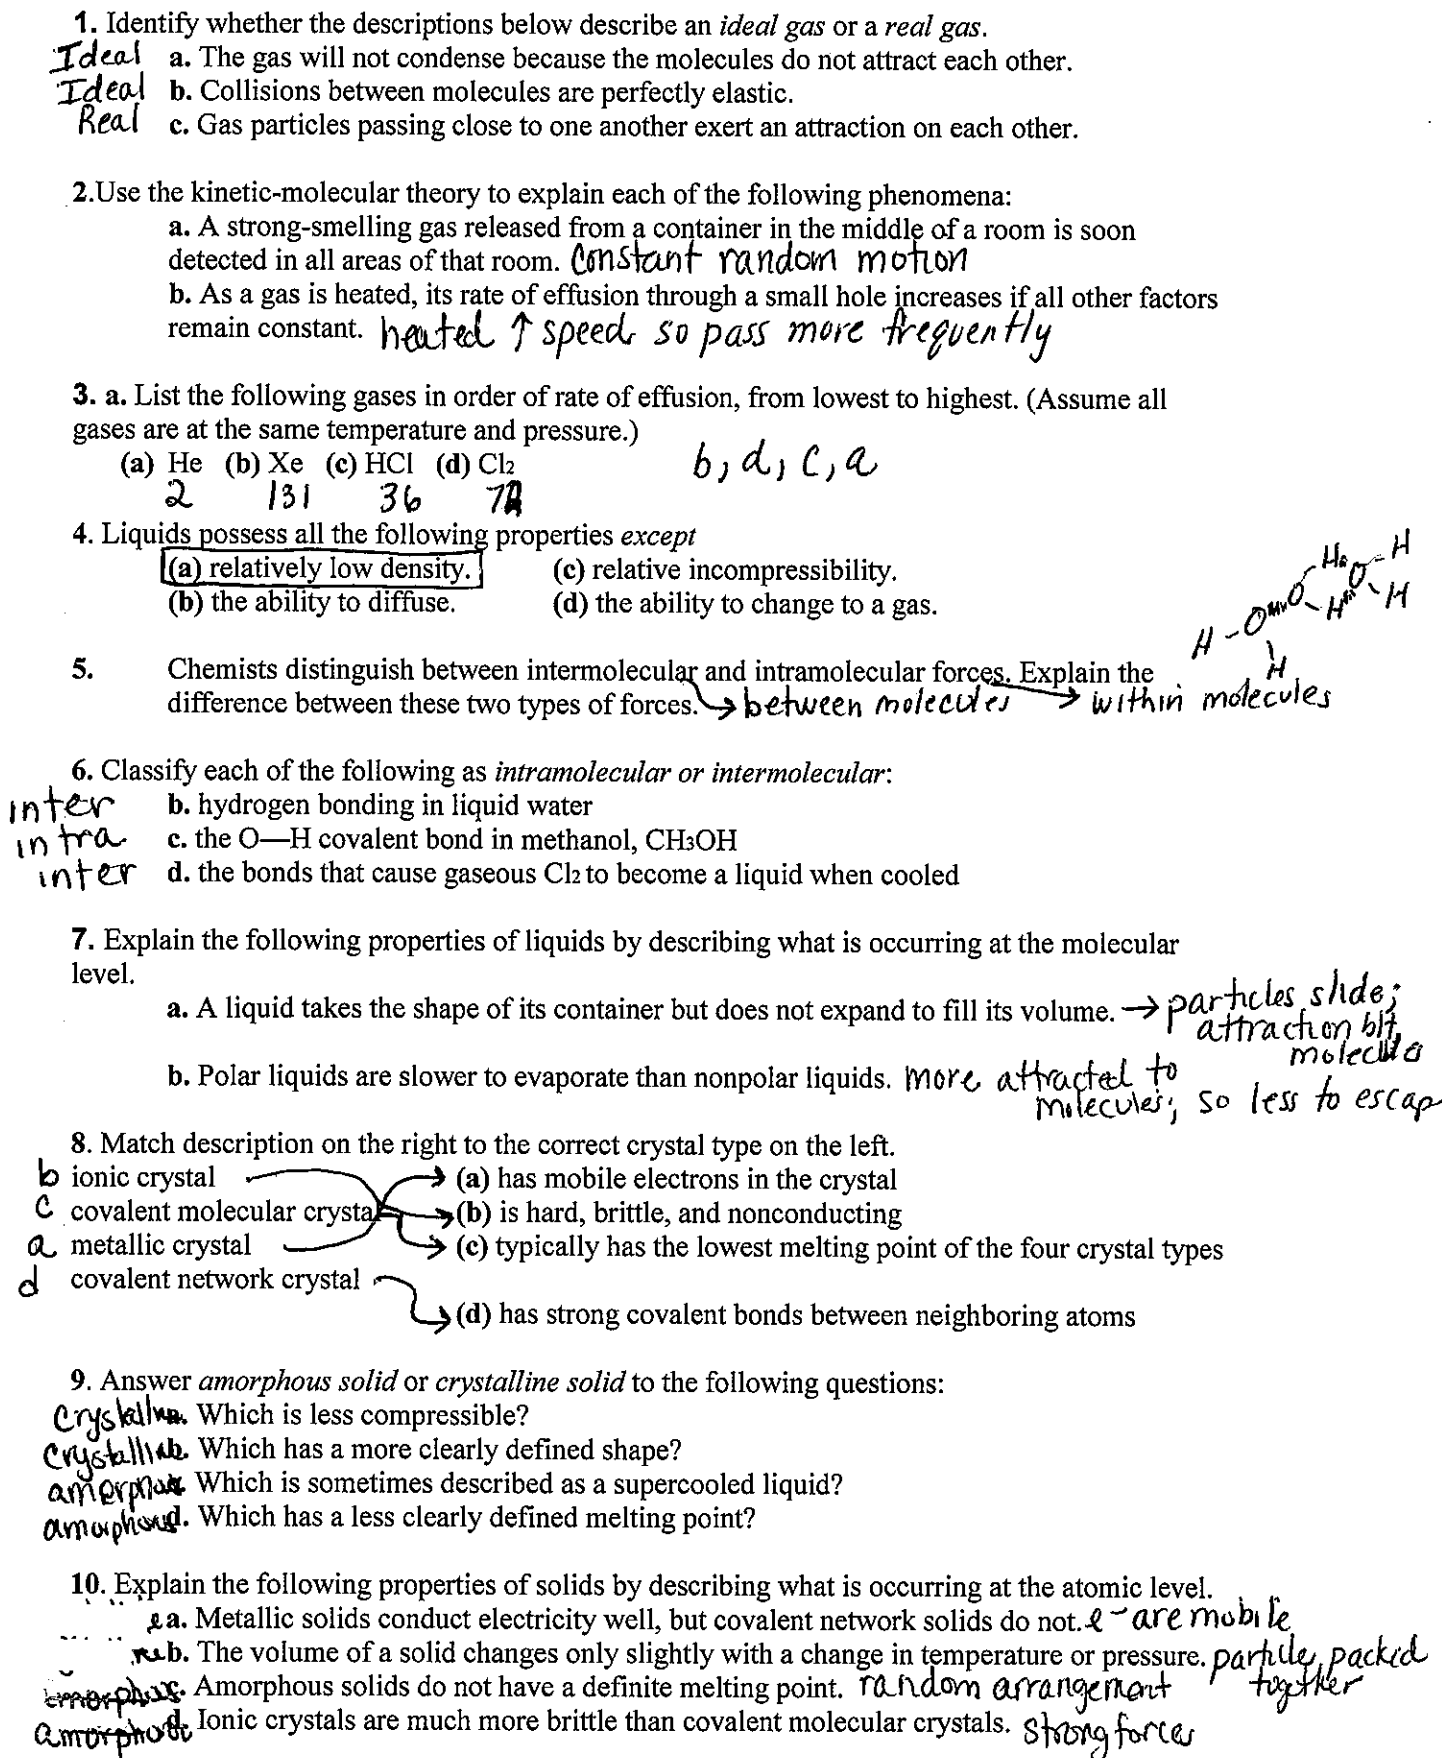 1. Identify whether the descriptions below describe an ideal gas or a real gas.
Ideal a. The gas will not condense because the molecules do not attract each other.
Ideal b. Collisions between molecules are perfectly elastic.
Real c. Gas particles passing close to one another exert an attraction on each other.
2.Use the kinetic-molecular theory to explain each of the following phenomena:
a. A strong-smelling gas released from a container in the middle of a room is soon
detected in all areas of that room. constant random motion
b. As a gas is heated, its rate of effusion through a small hole increases if all other factors
remain constant. heated ↑ speed so pass more frequently
3. a. List the following gases in order of rate of effusion, from lowest to highest. (Assume all
gases are at the same temperature and pressure.)
(a) He (b) Xe (c) HCl (d) Cl2 b, d, c, a
2 131 36
4. Liquids possess all the following properties except
(a) relatively low density. (c) relative incompressibility.
(b) the ability to diffuse. (d) the ability to change to a gas.
H O H O H O H H H
5. Chemists distinguish between intermolecular and intramolecular forces. Explain the
difference between these two types of forces. → between molecules → within molecules
6. Classify each of the following as intramolecular or intermolecular:
inter b. hydrogen bonding in liquid water
intra c. the O—H covalent bond in methanol, CH3OH
inter d. the bonds that cause gaseous Cl2 to become a liquid when cooled
7. Explain the following properties of liquids by describing what is occurring at the molecular
level.
a. A liquid takes the shape of its container but does not expand to fill its volume. → particles slide;
attraction b/t
molecules
b. Polar liquids are slower to evaporate than nonpolar liquids. more attracted to
molecules; so less to escap
8. Match description on the right to the correct crystal type on the left.
b ionic crystal (a) has mobile electrons in the crystal
c covalent molecular crystal (b) is hard, brittle, and nonconducting
a metallic crystal (c) typically has the lowest melting point of the four crystal types
d covalent network crystal
(d) has strong covalent bonds between neighboring atoms
9. Answer amorphous solid or crystalline solid to the following questions:
Crystalline a. Which is less compressible?
Crystalline b. Which has a more clearly defined shape?
amerphous c. Which is sometimes described as a supercooled liquid?
amorphous d. Which has a less clearly defined melting point?
10. Explain the following properties of solids by describing what is occurring at the atomic level.
a. Metallic solids conduct electricity well, but covalent network solids do not. e⁻ are mobile
b. The volume of a solid changes only slightly with a change in temperature or pressure. particles packed
together
c. Amorphous solids do not have a definite melting point. random arrangement
amorphous d. Ionic crystals are much more brittle than covalent molecular crystals. strong forces